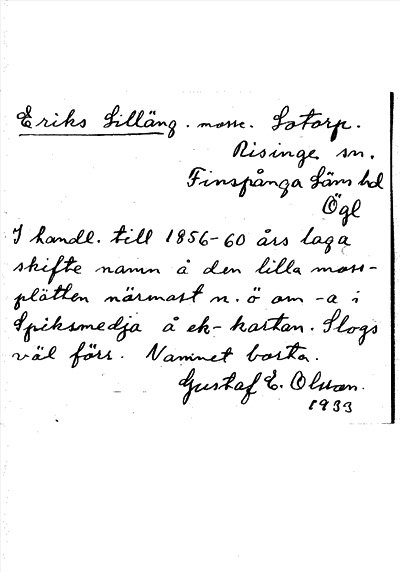 Eriks Lilläng. mosse. Lotorp.
Risinge sn.
Finspånga Läns hd
Ögl
I handl. till 1856-60 års laga
skifte namn å den lilla moss-
plätten närmast n. ö om -a i
Spiksmedja å ek-kartan. Slogs
väl förr. Namnet borta.
Gustaf E. Olsson.
1933